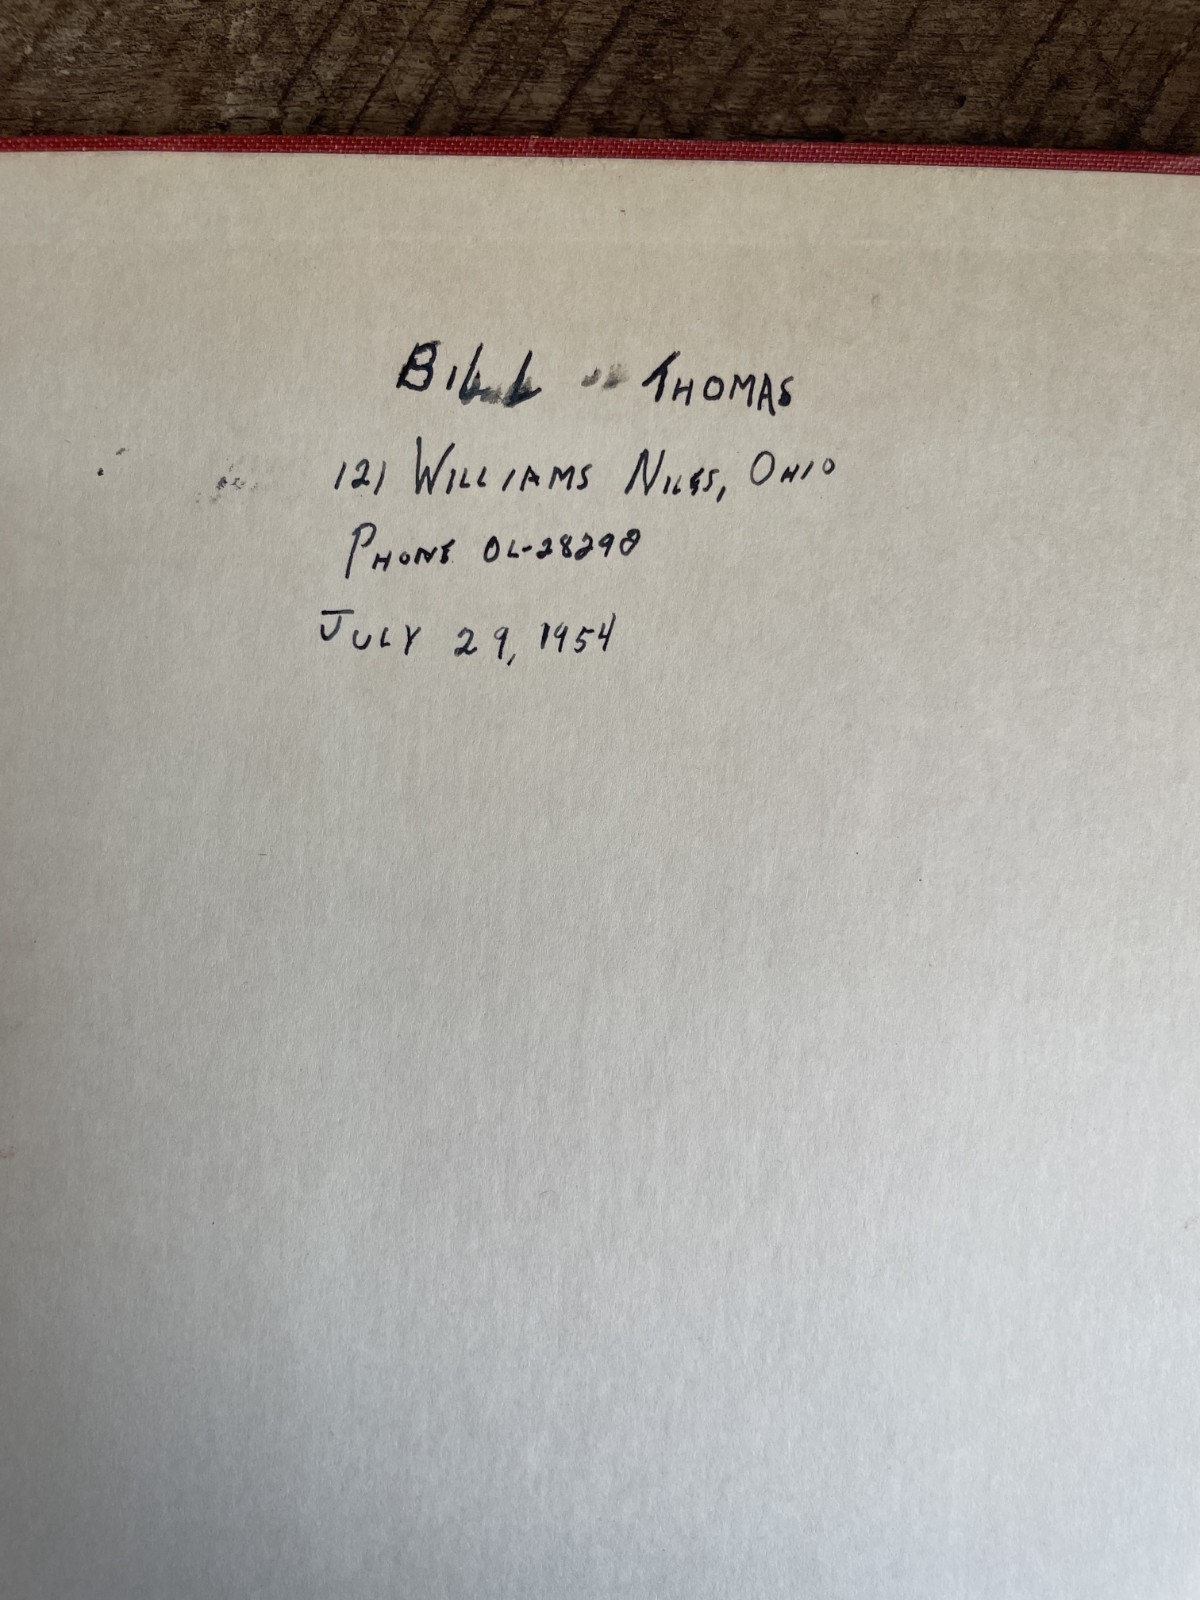 BILL THOMAS
121 WILLIAMS NILES, OHIO
PHONE OL-28298
JULY 29, 1954